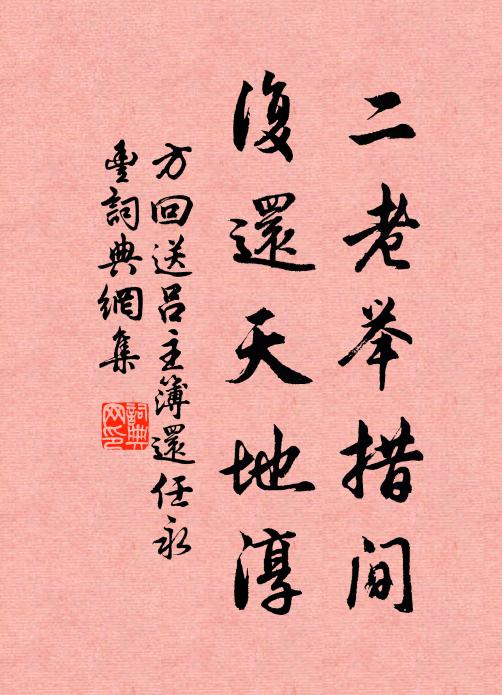 二老举措间
復還天地淳
方回送呂主簿還任永
豐詞典網集
詞典网印